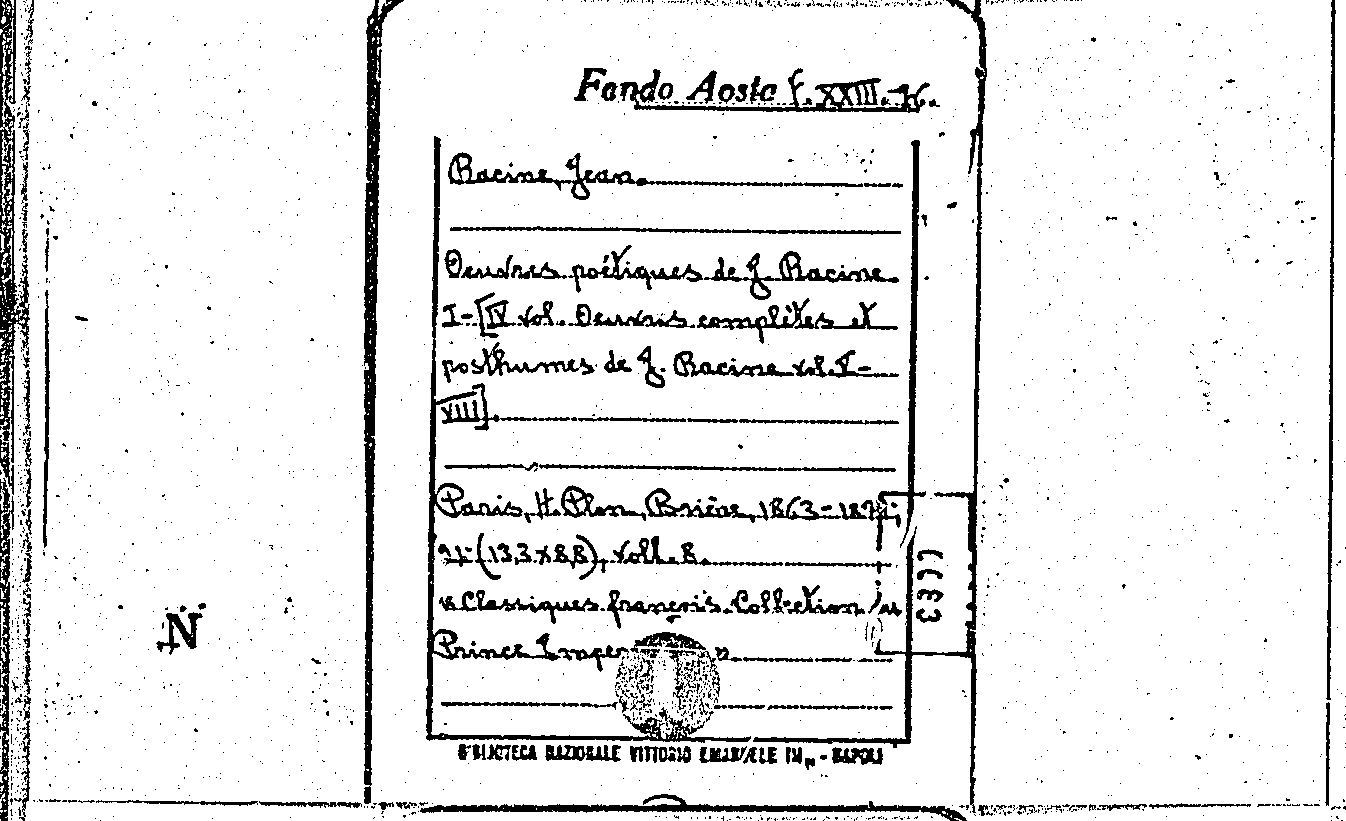 Fondo Aosta f. XXIII. 76.
Racine, Jean.
Oeuvres poétiques de J. Racine.
I-[IV vol. Oeuvres complètes et
posthumes de J. Racine vol. I-
VIII].
Paris, H. Plon, Brière, 1863-
(13,3x8,8), voll. 8.
«Classiques français. Collection du
Prince »
BIBLIOTECA NAZIONALE VITTORIO EMANUELE III - NAPOLI
N